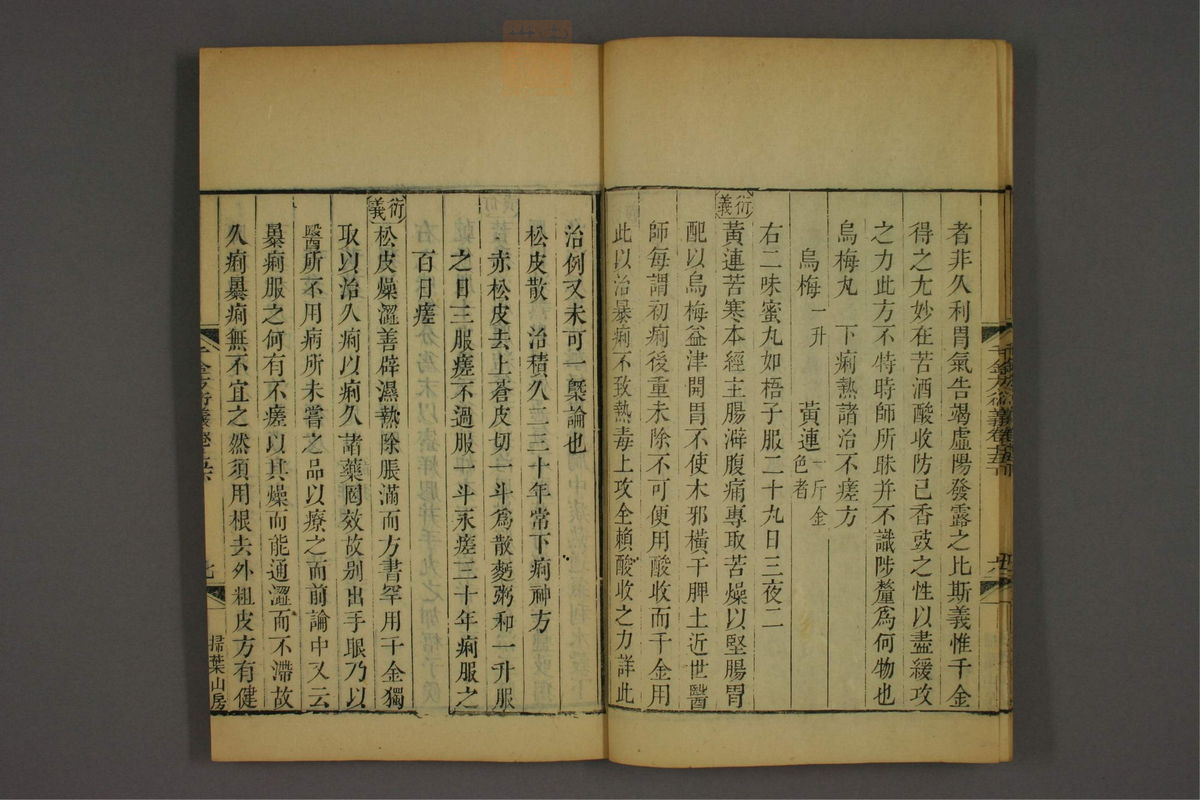 者非久利胃氣告竭虛陽發露之比斯義惟千金
得之尢妙在苦酒酸收防己香豉之性以盡緩攻
之力此方不特時師所昧并不識陟釐爲何物也
烏梅丸　下痢熱諸治不瘥方
烏梅一升　黃連一斤金色者
右二味蜜丸如梧子服二十丸日三夜二
衍義
黃連苦寒本經主腸澼腹痛專取苦燥以堅腸胃
配以烏梅益津開胃不使木邪橫干脾土近世醫
師每謂初痢後重未除不可便用酸收而千金用
此以治暴痢不致熱毒上攻全賴酸收之力詳此
治例又未可一槩論也
松皮散　治積久二三十年常下痢神方
赤松皮去上蒼皮切一斗爲散麪粥和一升服
之日三服瘥不過服一斗永瘥三十年痢服之
百日瘥
衍義
松皮燥澀善辟濕熱除脹滿而方書罕用千金獨
取以治久痢以痢久諸藥罔效故别出手眼乃以
醫所不用病所未嘗之品以療之而前論中又云
暴痢服之何有不瘥以其燥而能通澀而不滯故
久痢暴痢無不宜之然須用根去外粗皮方有健
掃葉山房